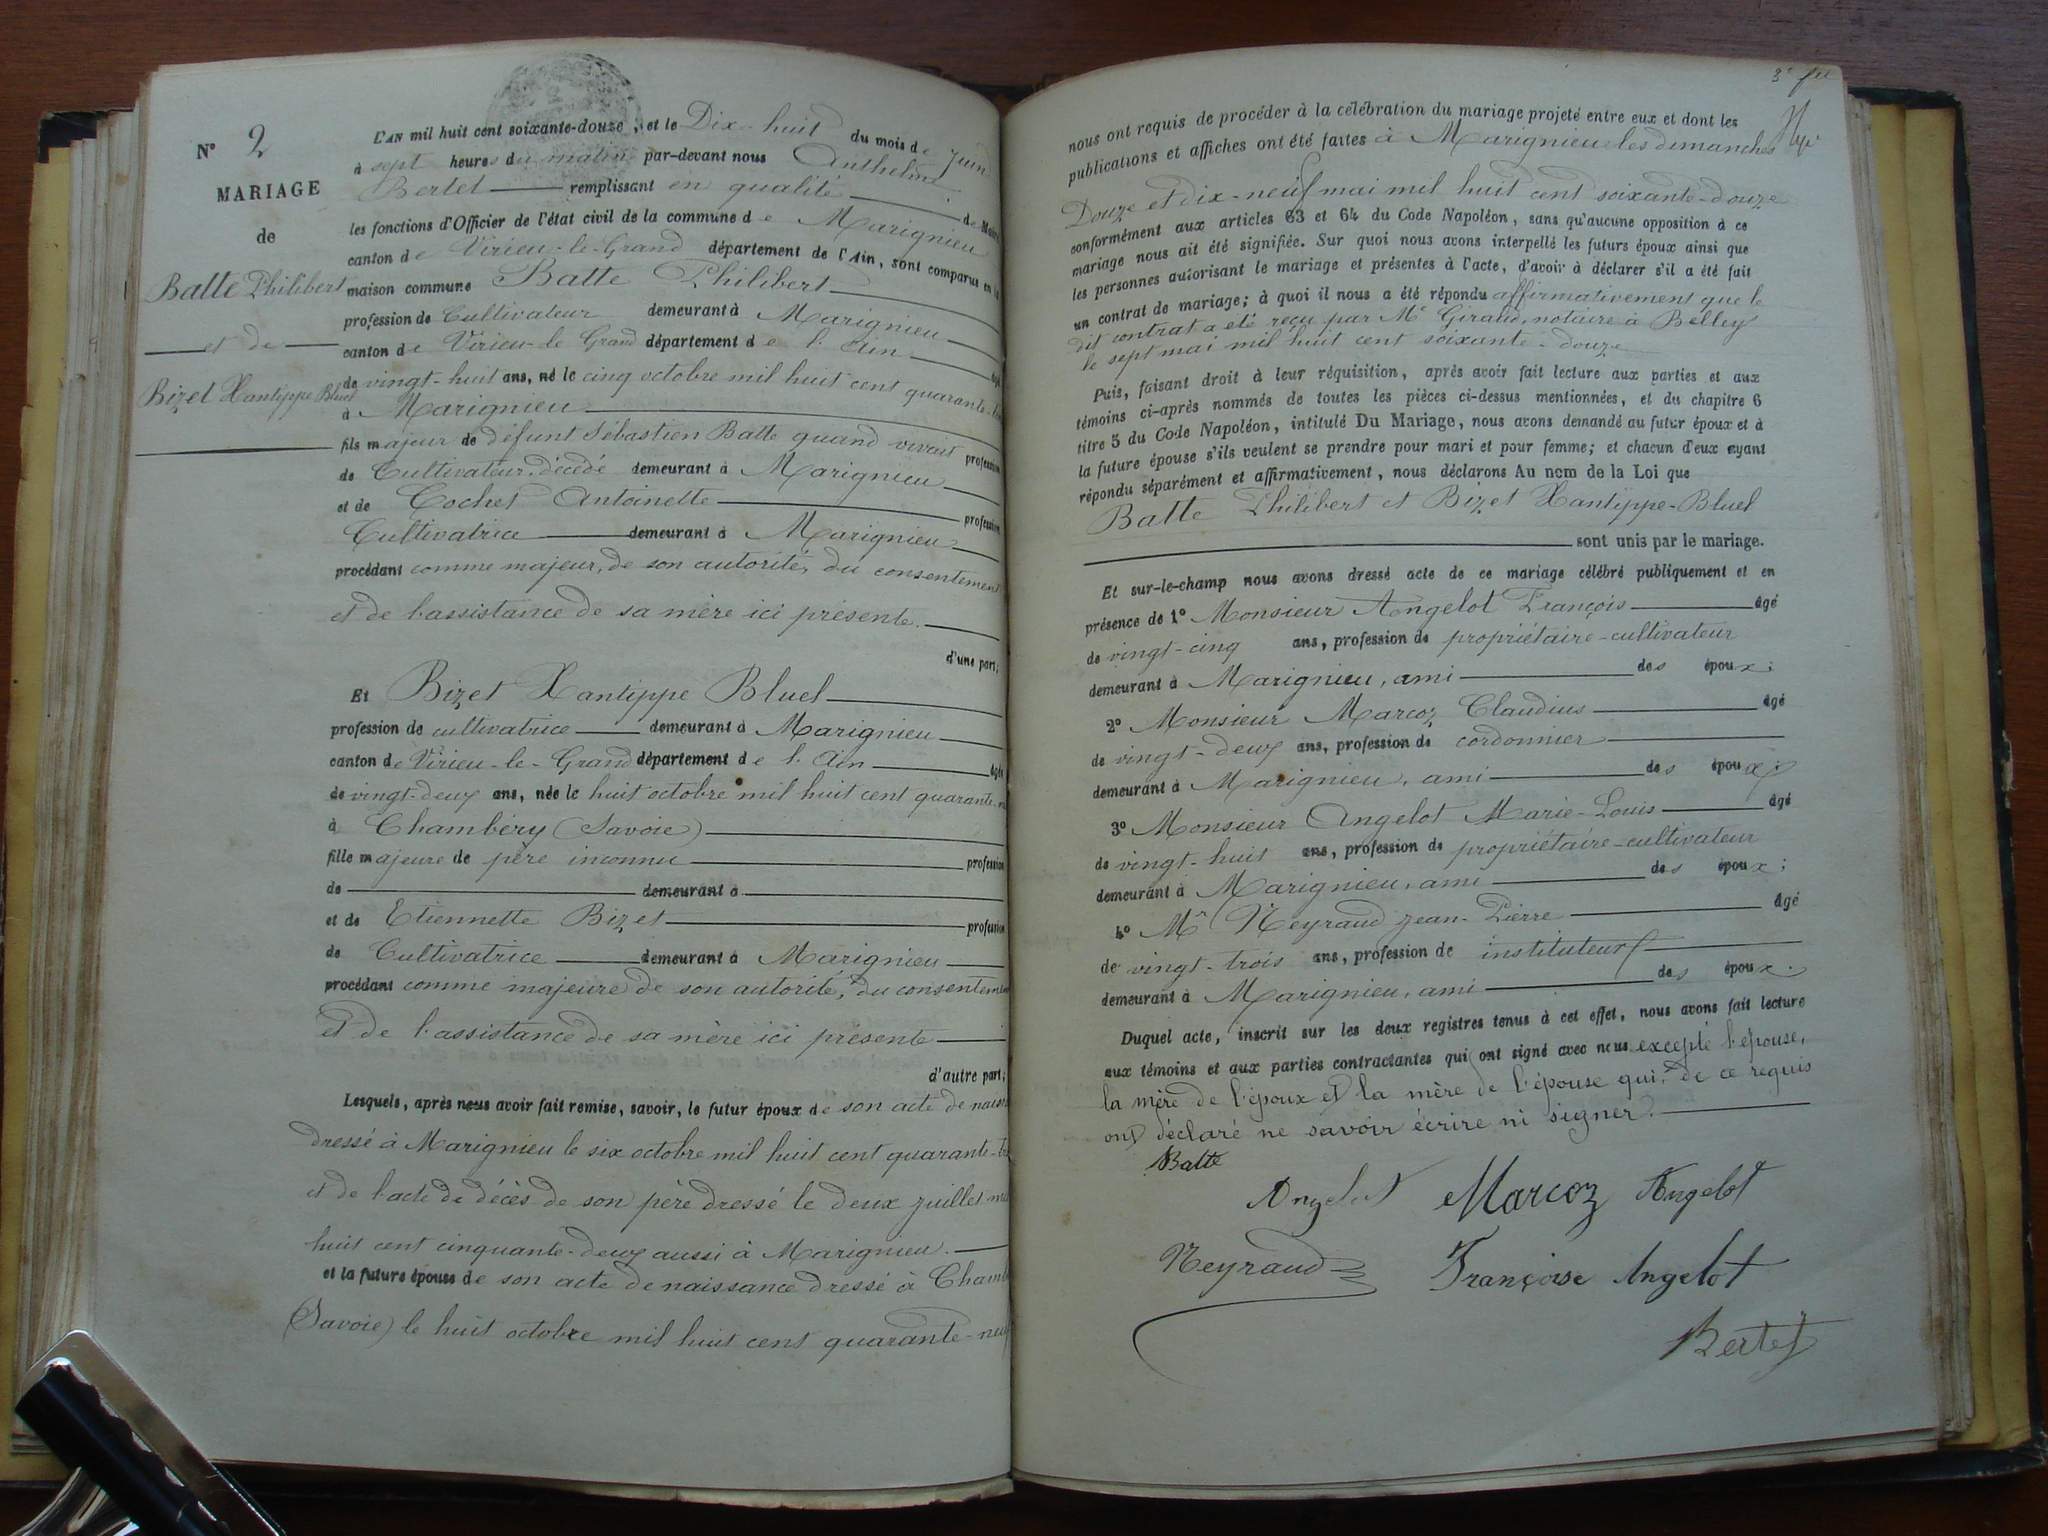 N° 2
MARIAGE
de
Batte Philibert
et de
Bizet Xantippe Bluel
L'AN mil huit cent soixante-douze, et le Dix-huit du mois de Juin
à sept heures du matin par-devant nous Anthelme
Bertet remplissant en qualité de Maire
les fonctions d'Officier de l'état civil de la commune de Marignieu
canton de Virieu-le-Grand département de l'Ain, sont comparus en la
maison commune Batte Philibert
profession de Cultivateur demeurant à Marignieu
canton de Virieu-le Grand département de l'Ain âgé
de vingt-huit ans, né le cinq octobre mil huit cent quarante-
à Marignieu
fils majeur de défunt Sébastien Batte quand vivait profession
de Cultivateur, décédé demeurant à Marignieu
et de Cochet Antoinette profession
Cultivatrice demeurant à Marignieu
procédant comme majeur, de son autorité, du consentement
et de l'assistance de sa mère ici présente.
d'une part;
Et Bizet Xantippe Bluel
profession de cultivatrice demeurant à Marignieu
canton de Virieu-le-Grand département de l'Ain âgée
de vingt-deux ans, née le huit octobre mil huit cent quarante-
à Chambéry (Savoie)
fille majeure de père inconnu profession
de demeurant à
et de Etiennette Bizet profession
de Cultivatrice demeurant à Marignieu
procédant comme majeure de son autorité, du consentem
et de l'assistance de sa mère ici présente
d'autre part;
Lesquels, après nous avoir fait remise, savoir, le futur époux de son acte de naiss
dressé à Marignieu le six octobre mil huit cent quarante-
et de l'acte de décès de son père dressé le deux juillet mil
huit cent cinquante-deux aussi à Marignieu.
et la future épouse de son acte de naissance dressé à Chamb
(Savoie) le huit octobre mil huit cent quarante-neuf
nous ont requis de procéder à la célébration du mariage projeté entre eux et dont les
publications et affiches ont été faites à Marignieu les dimanches
Douze et dix-neuf mai mil huit cent soixante-douze
conformément aux articles 63 et 64 du Code Napoléon, sans qu'aucune opposition à ce
mariage nous ait été signifiée. Sur quoi nous avons interpellé les futurs époux ainsi que
les personnes autorisant le mariage et présentes à l'acte, d'avoir à déclarer s'il a été fait
un contrat de mariage; à quoi il nous a été répondu affirmativement que le
dit contrat a été reçu par Me Giraud, notaire à Belley
le sept mai mil huit cent soixante-douze
Puis, faisant droit à leur réquisition, après avoir fait lecture aux parties et aux
témoins ci-après nommés de toutes les pièces ci-dessus mentionnées, et du chapitre 6
titre 5 du Code Napoléon, intitulé Du Mariage, nous avons demandé au futur époux et à
la future épouse s'ils veulent se prendre pour mari et pour femme; et chacun d'eux ayant
répondu séparément et affirmativement, nous déclarons Au nom de la Loi que
Batte Philibert et Bizet Xantippe-Bluel
sont unis par le mariage.
Et sur-le-champ nous avons dressé acte de ce mariage célébré publiquement et en
présence de 1° Monsieur Angelot François âgé
de vingt-cinq ans, profession de propriétaire-cultivateur
demeurant à Marignieu, ami des époux;
2° Monsieur Marcoz Claudius âgé
de vingt-deux ans, profession de cordonnier
demeurant à Marignieu, ami des époux;
3° Monsieur Angelot Marie-Louis âgé
de vingt-huit ans, profession de propriétaire-cultivateur
demeurant à Marignieu, ami des époux;
4° Mr Neyraud Jean-Pierre âgé
de vingt-trois ans, profession de instituteur
demeurant à Marignieu, ami des époux.
Duquel acte, inscrit sur les deux registres tenus à cet effet, nous avons fait lecture
aux témoins et aux parties contractantes qui ont signé avec nous excepté l'épouse,
la mère de l'époux et la mère de l'épouse qui, de ce requis
ont déclaré ne savoir écrire ni signer.
Batte
Angelot Marcoz Angelot
Neyraud Françoise Angelot
Bertet